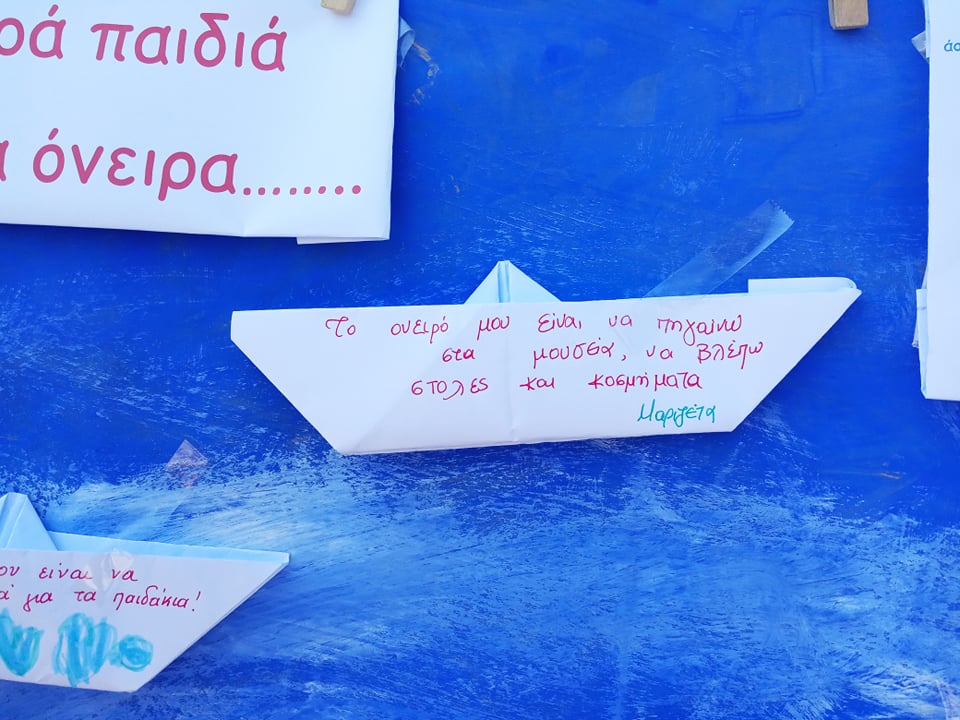 ρά παιδιά
α όνειρα........
Το ονειρό μου είναι να πηγαίνω
στα μουσεία, να βλέπω
στολες και κοσμήματα
Μαριζέτα
ου είναι να
ά για τα παιδάκια!